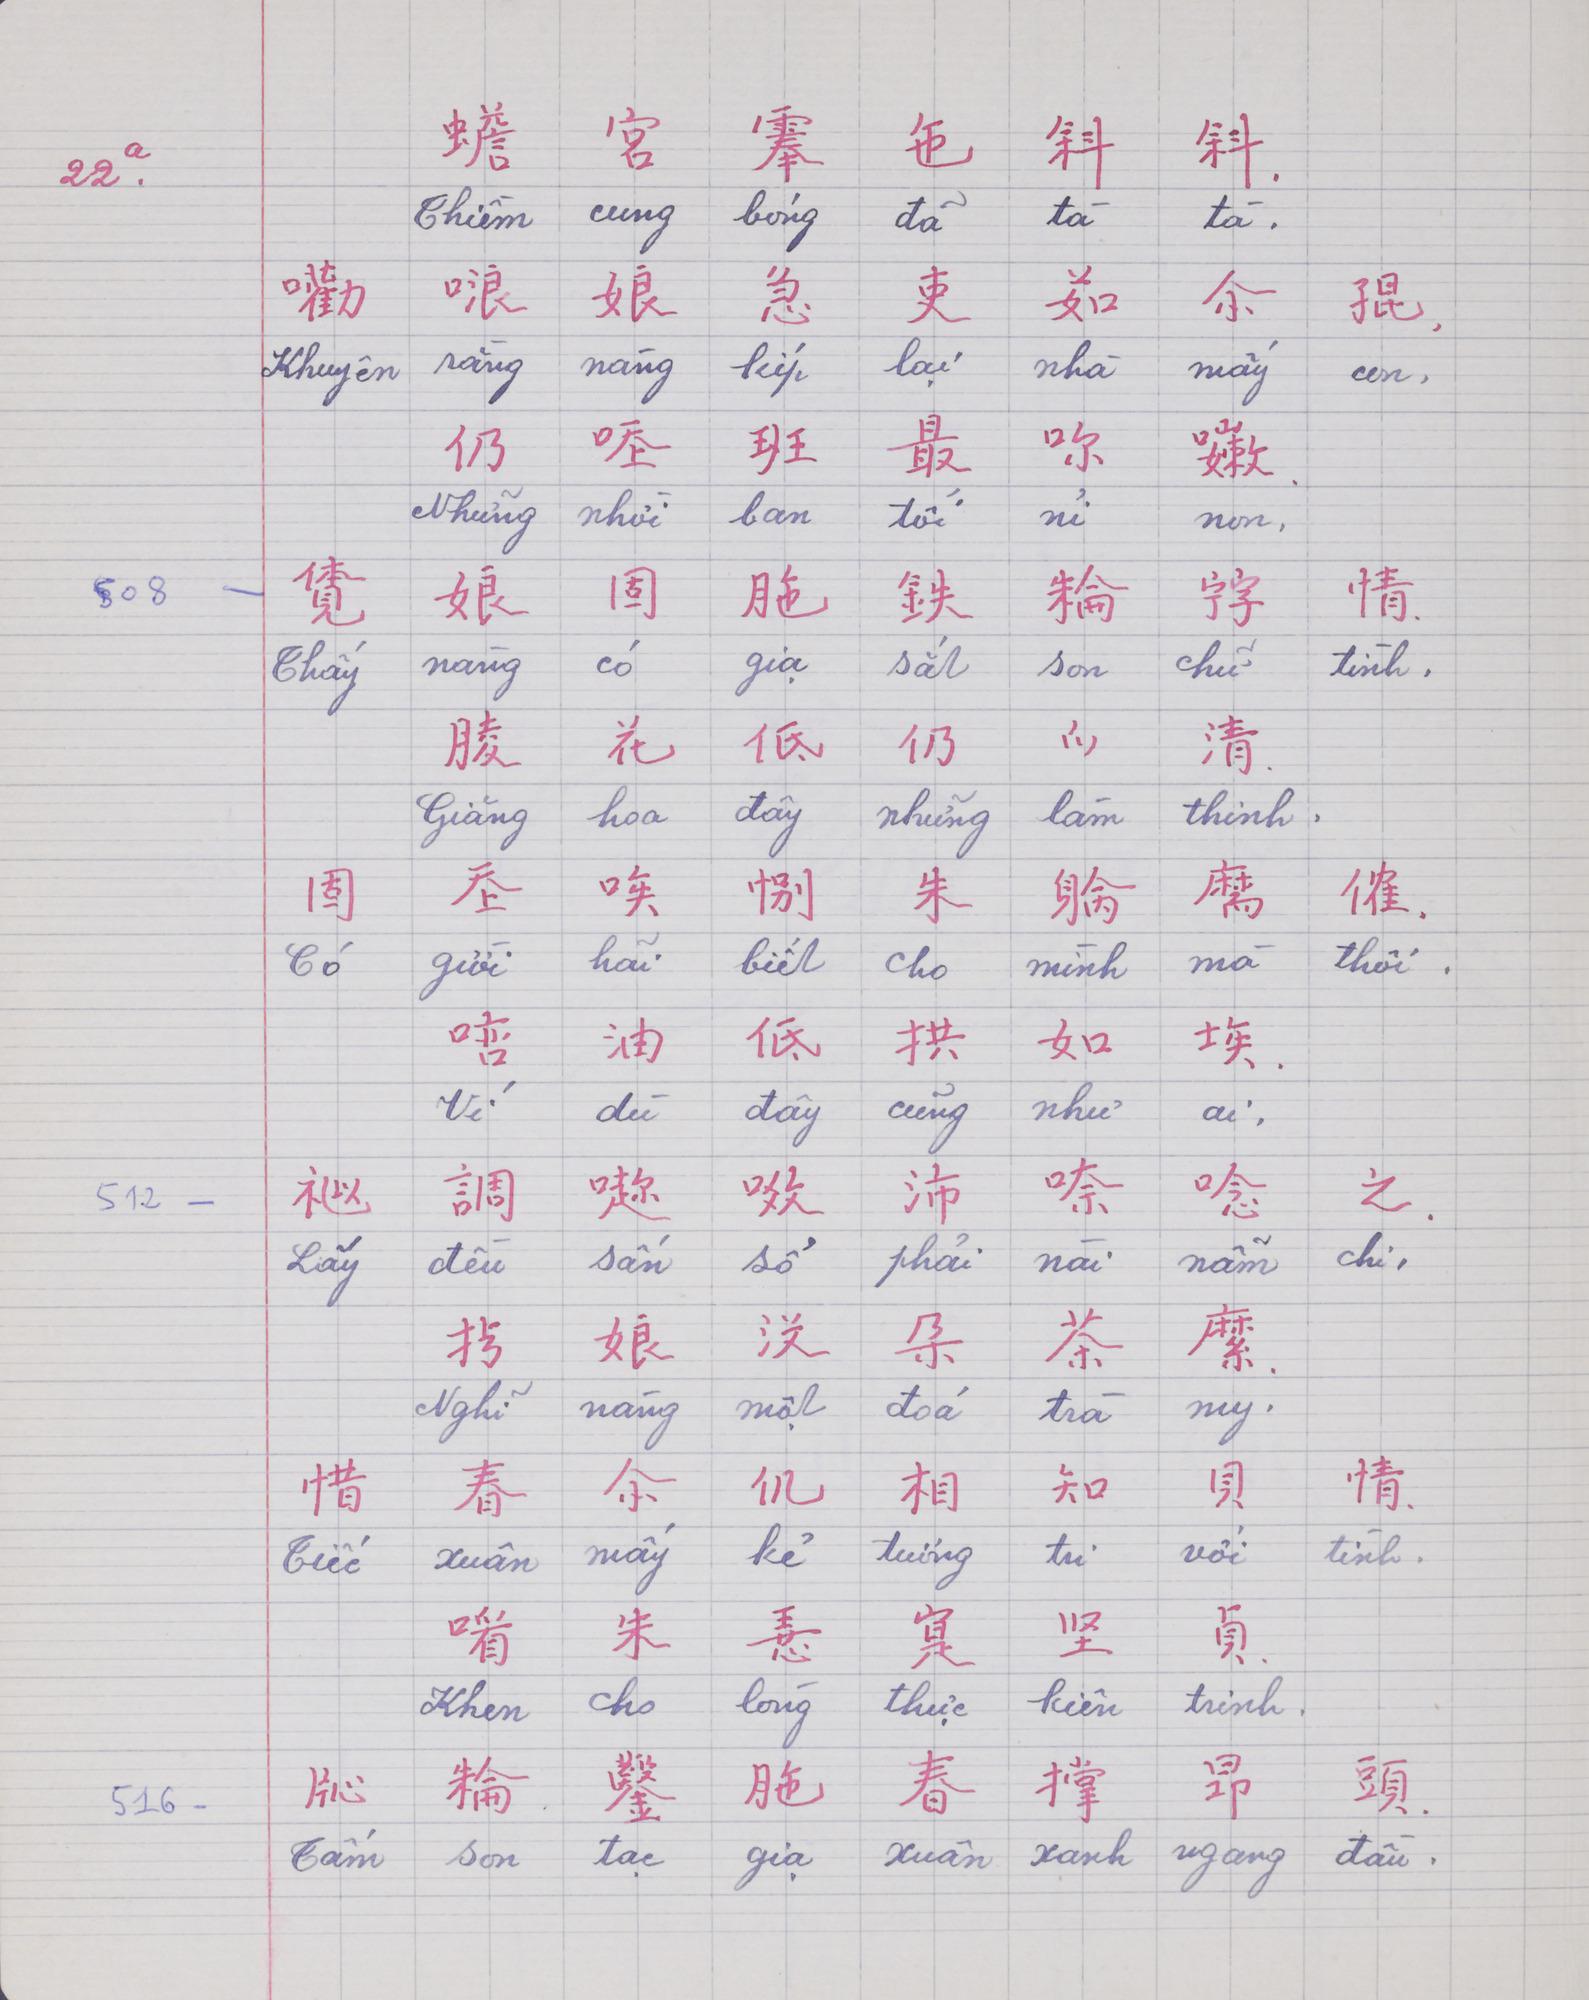 22a.
蟾 宮 䨔 㐌 斜 斜.
Thiềm cung bóng đã tà tà.
嚾 哴 娘 急 吏 茹 余 𡥵,
Khuyên rằng nàng kíp lại nhà mấy con,
仍 𠳒 班 最 呢 嫩.
Những nhời ban tối nỉ non,
508 - 覓 娘 固 𦙏 鉄 𣘈 𡦂 情.
Thấy nàng có giạ sắt son chữ tình.
朘 花 低 仍 𬈋 清.
Giăng hoa đây những làm thinh.
固 𡗶 唉 別 朱 𨉟 麿 催.
Có giời hãi biết cho mình mà thôi.
噽 油 低 拱 如 埃.
Ví dù đây cũng như ai,
512 - 𥙩 調 𠽋 㗂 沛 㖠 唸 之.
Lấy đều sấn sổ phải nài nẫm chi,
𢪀 娘 沒 朵 茶 縻.
Nghĩ nàng một đoá trà my.
惜 春 余 仉 相 知 貝 情.
Tiếc xuân mấy kẻ tương tri với tình.
𠸦 朱 𢚸 寔 坚 貞.
Khen cho lòng thực kiên trinh.
516 - 𬌓 𣘈 鑿 𦙏 春 撑 昂 頭.
Tấm son tạc giạ xuân xanh ngang đầu.